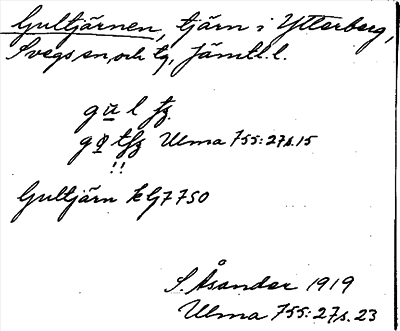 Gultjärnen, tjärn i Ytterberg,
Svegs sn och tg, Jämtl. l.
Ulma 755:27s.15
Gultjärn k G7750
S. Åsander 1919
Ulma 755:27s.23